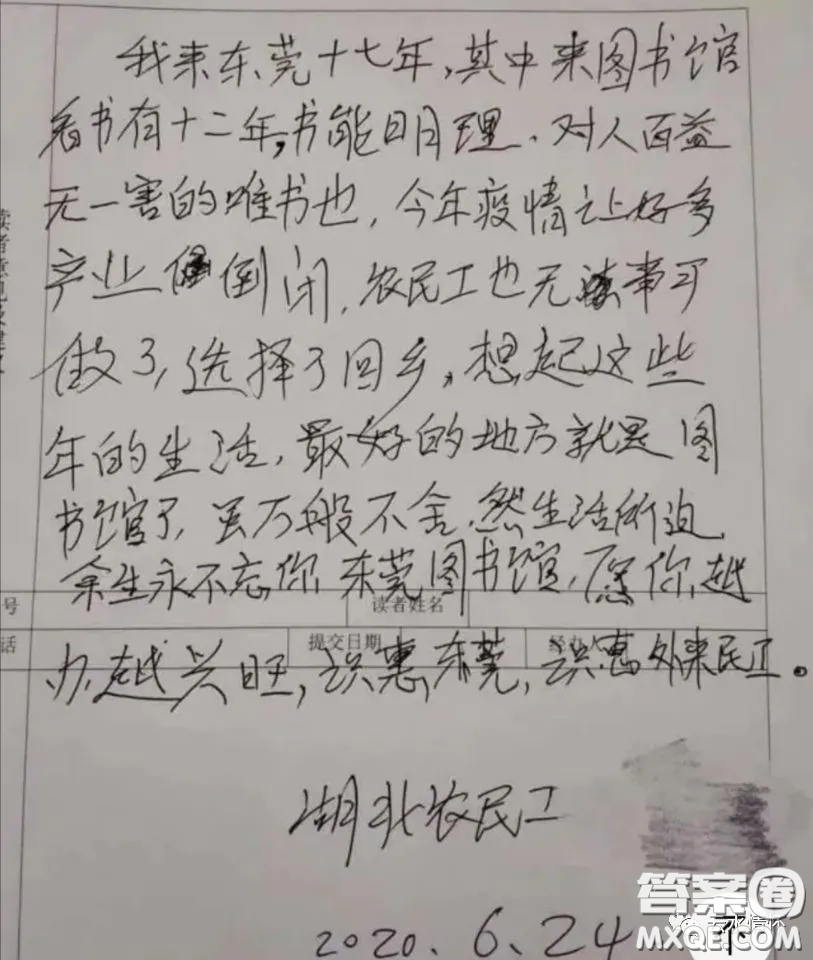 我来东莞十七年，其中来图书馆
看书有十二年，书能明理，对人百益
无一害的唯书也，今年疫情让好多
产业倒闭，农民工也无事可
做了，选择了回乡，想起这些
年的生活，最好的地方就是图
书馆了，虽万般不舍，然生活所迫，
余生永不忘你，东莞图书馆，愿你越
号 读者姓名
话 提交日期 经办人
办越兴旺，识惠东莞，识惠外来民工。
湖北农民工
2020.6.24
答案圈
MXQE.COM